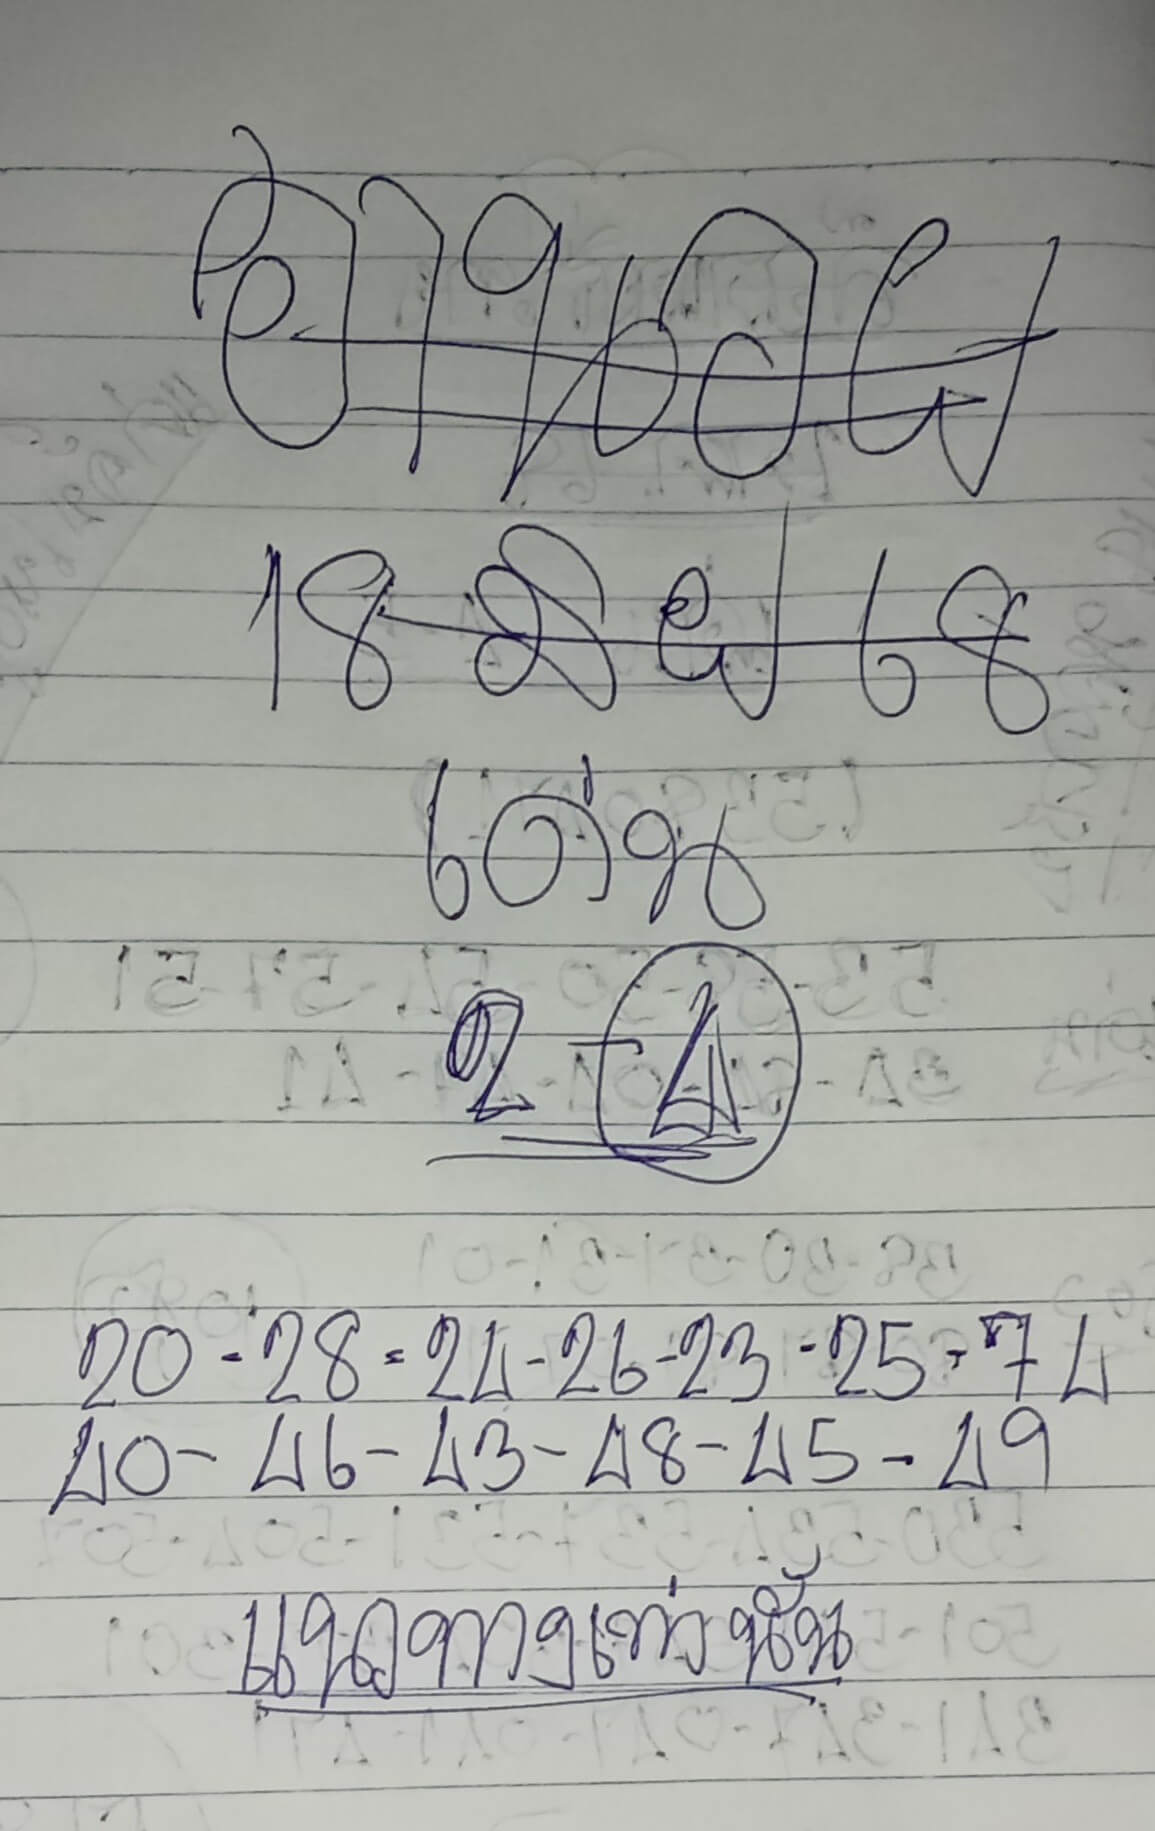 ฮานอย
18 มิย 68
เด่น
2 - 4
20 - 28 = 24 - 26 - 23 - 25 - 74
40 - 46 - 43 - 48 - 45 - 49
แนวทางเท่านั้น